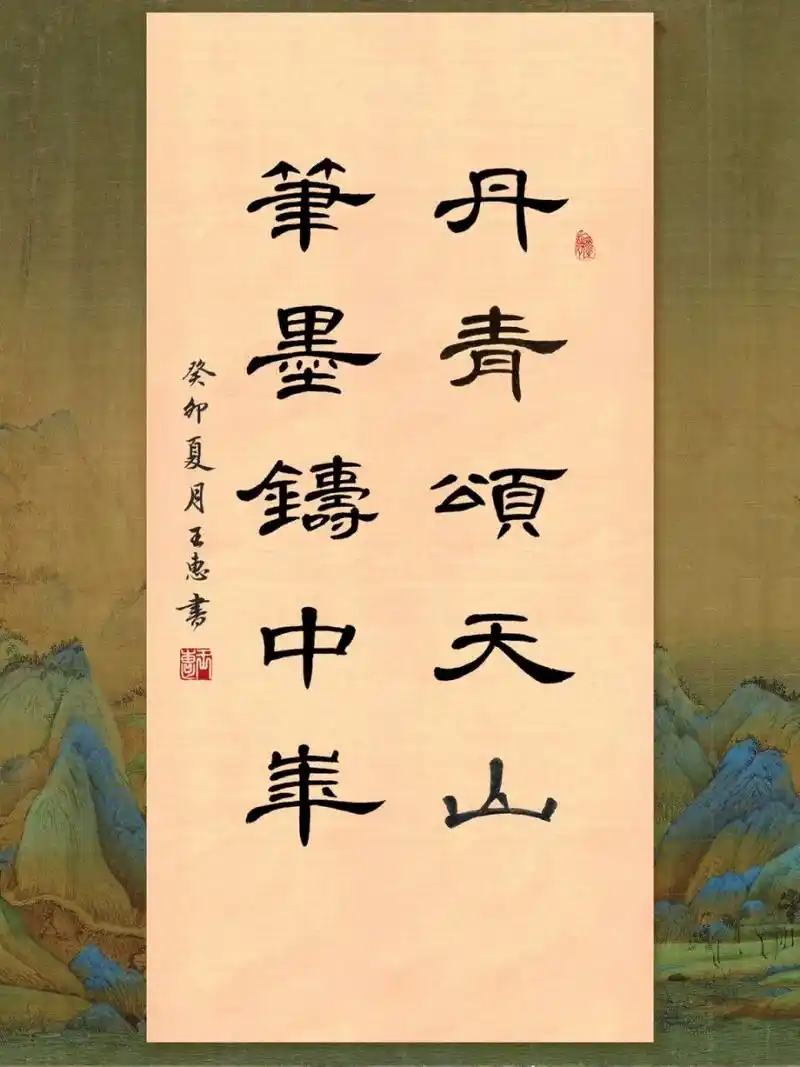 丹青頌天山
筆墨鑄中華
癸卯夏月王惠書
王惠